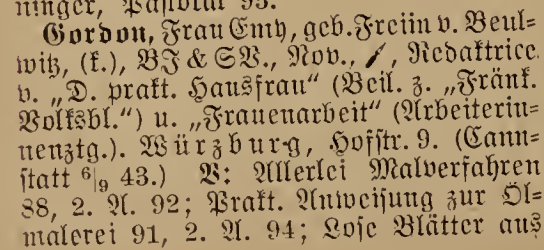 ninger, Pastorat 93.
Gordon, Frau Emy, geb. Freiin v. Beul-
witz, (k.), BJ & SV., Nov., Redaktrice
v. „D. prakt. Hausfrau“ (Beil. z. „Fränk.
Volksbl.“) u. „Frauenarbeit“ (Arbeiterin-
nenztg.). Würzburg, Hofstr. 9. (Cann-
statt 6/9 43.) V: Allerlei Malverfahren
88, 2. A. 92; Prakt. Anweisung zur Öl-
malerei 91, 2. A. 94; Lose Blätter aus